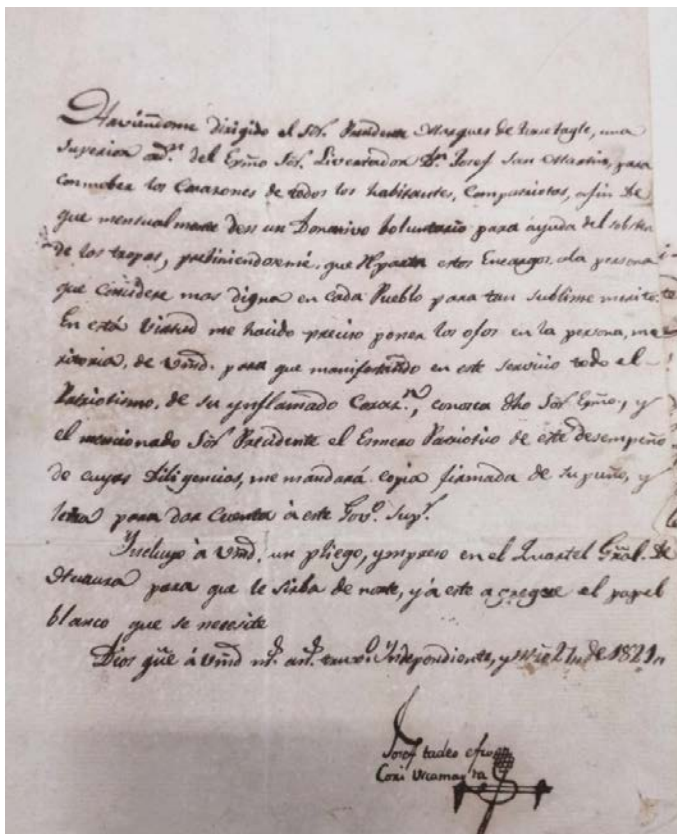 Haviendome dirigido el Sōr. Precidente Marques de Torre tagle, una
Superior ad.ⁿ del Exmo Sōr. Livertador Dⁿ Josef San Martin, para
conmober los Corazones de todos los habitantes, Compatriotas, afin De
que mensualmente den un Donativo boluntario para ayuda del
de las tropas, prebiniendoseme, que Reparta estos Encargos, ala persona
que Concidere mas digna en cada Pueblo para tan sublime merito.
En está Virtud me hacido preciso poner los ojos en la persona, me
ritoria, de Vmd. para que manifestando en este servicio todo el
Patriotismo, de su ynflamado Coraz.ⁿ, conosca dho Sōr Exmo, y
el mencionado Sōr Precidente el Esmero Patriotico de este desempeño
de cuyas Diligencias, me mandará copia firmada de su puño, y
letra para dar Cuenta à este Gov.º Sup.ʳ
Yncluyo à Vmd, un pliego, ympreso en el Quartel Grāl. De
Huaura para que le sirba de norte, y á este agregue el papel
blanco que se necesite
Dios güe à Vmd m.ˢ an.ˢ Independiente, y 27, de 1821,,
Josef tadeo